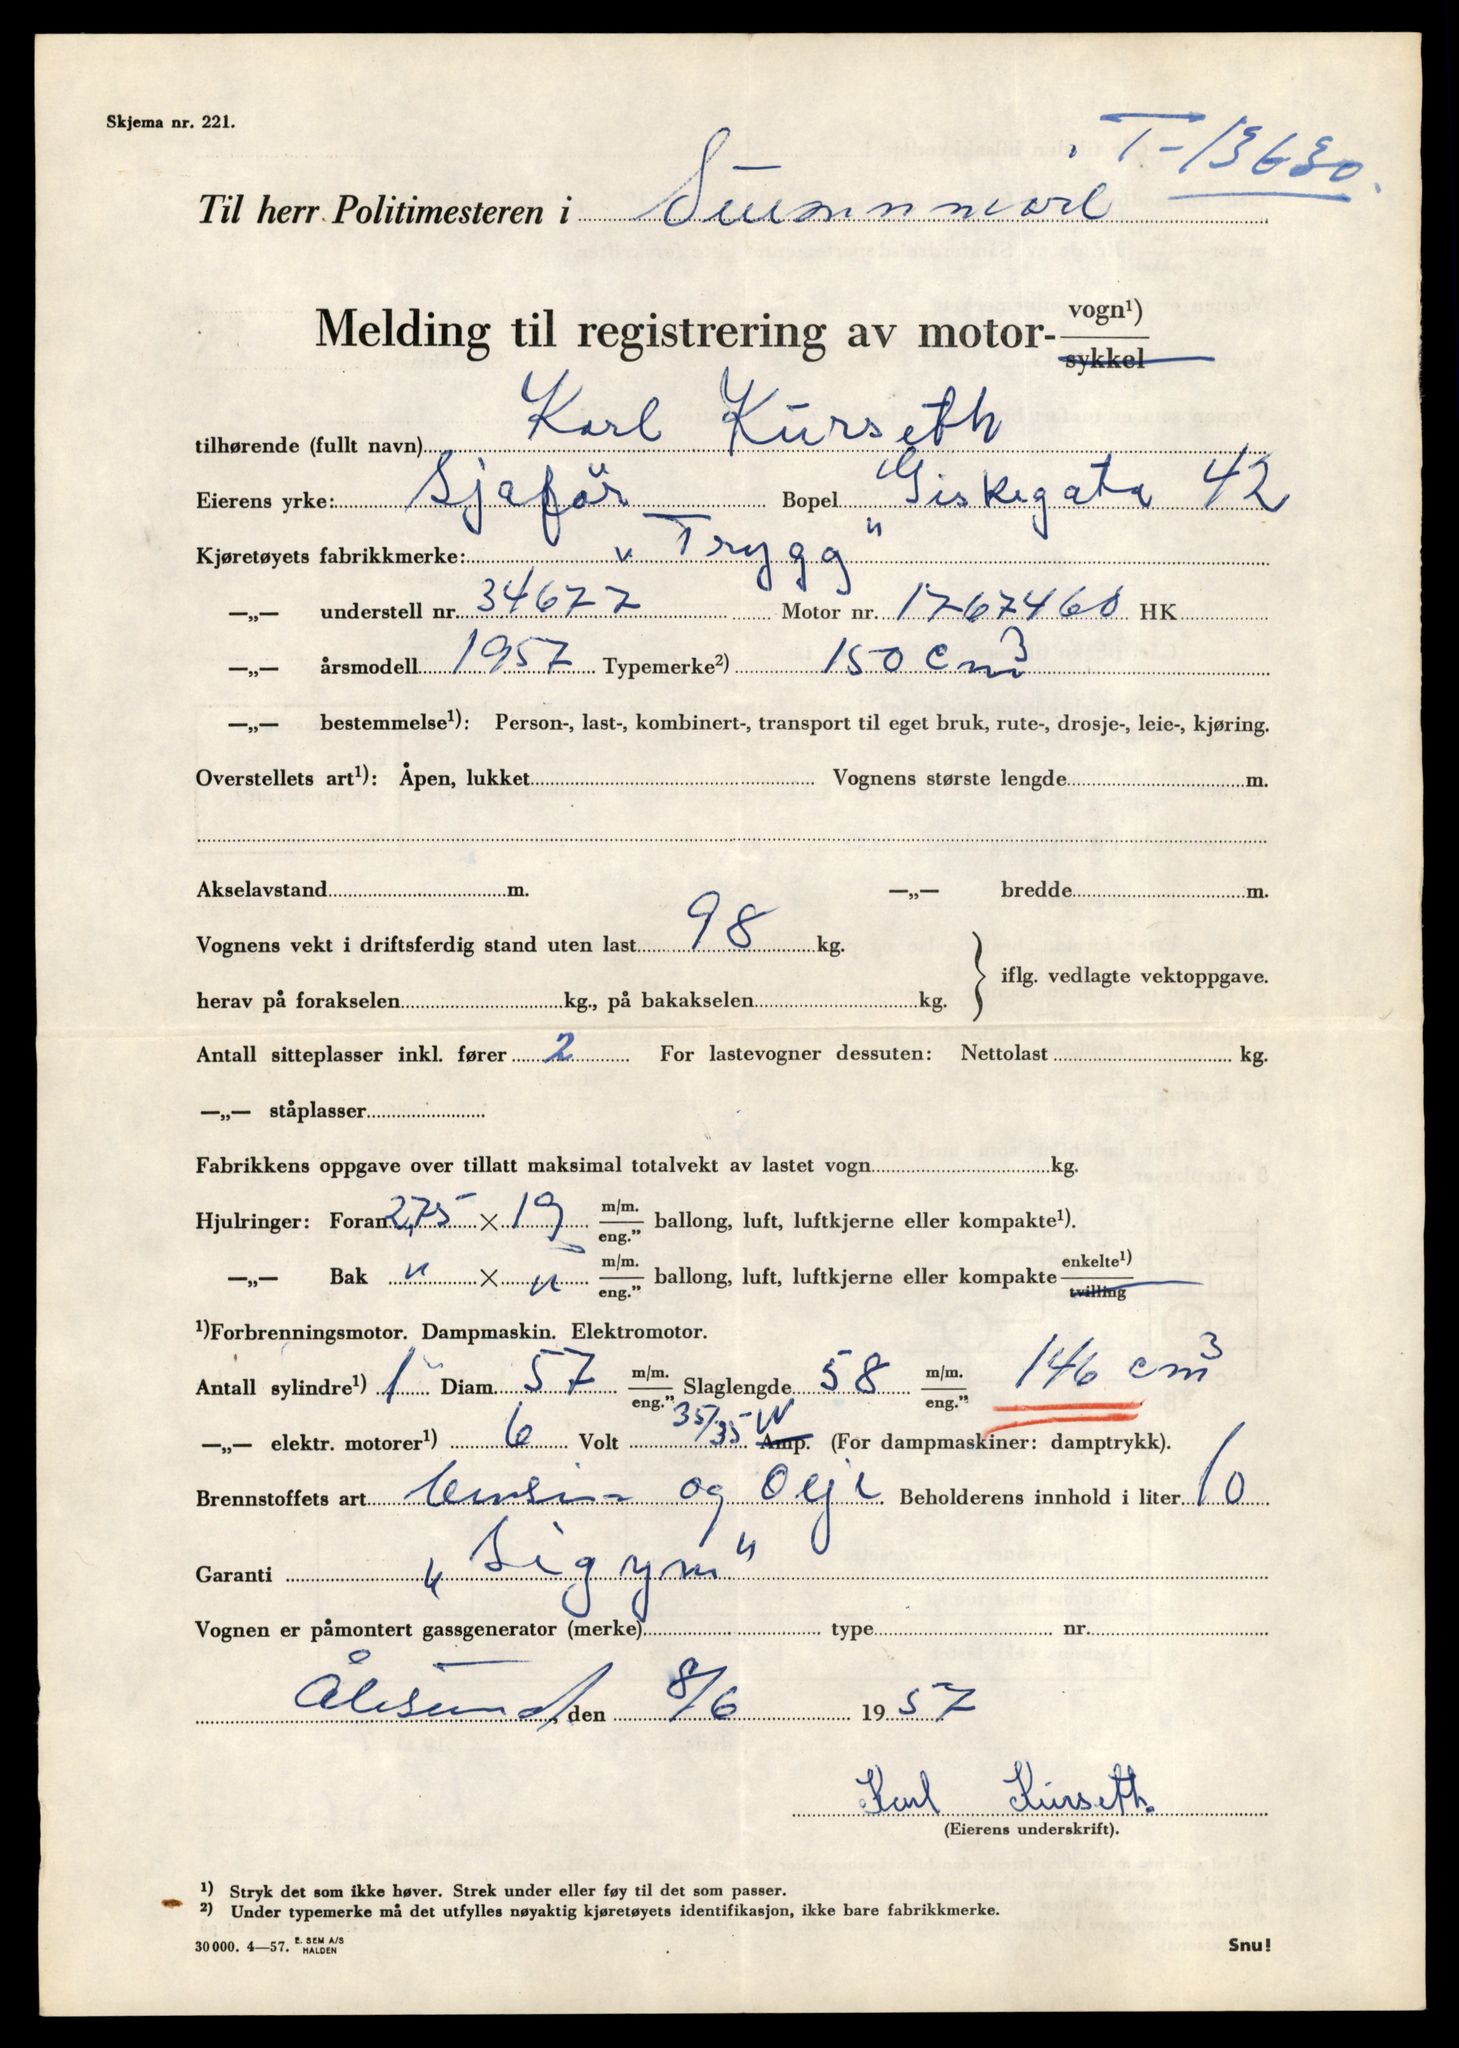 Skjema nr. 221.
T-13630.
Til herr Politimesteren i Sunnmøre
Melding til registrering av motor- vogn¹) sykkel
tilhørende (fullt navn) Karl Kurseth
Eierens yrke: Sjafør Bopel Giskegata 42
Kjøretøyets fabrikkmerke: „Trygg"
—„— understell nr. 34677 Motor nr. 1767460 HK
—„— årsmodell 1957 Typemerke²) 150 cm³
—„— bestemmelse¹): Person-, last-, kombinert-, transport til eget bruk, rute-, drosje-, leie-, kjøring.
Overstellets art¹): Åpen, lukket Vognens største lengde m.
Akselavstand m. —„— bredde m.
Vognens vekt i driftsferdig stand uten last 98 kg.
herav på forakselen kg., på bakakselen kg. } iflg. vedlagte vektoppgave.
Antall sitteplasser inkl. fører 2 For lastevogner dessuten: Nettolast kg.
—„— ståplasser
Fabrikkens oppgave over tillatt maksimal totalvekt av lastet vogn kg.
Hjulringer: Foran 2,75 × 19 m/m. eng." ballong, luft, luftkjerne eller kompakte¹).
—„— Bak " × " m/m. eng." ballong, luft, luftkjerne eller kompakte enkelte¹) tvilling
¹)Forbrenningsmotor. Dampmaskin. Elektromotor.
Antall sylindre¹) 1 Diam. 57 m/m. eng." Slaglengde 58 m/m. eng." 146 cm³
—„— elektr. motorer¹) 6 Volt 35/35 W Amp. (For dampmaskiner: damptrykk).
Brennstoffets art bensin og Olje Beholderens innhold i liter 10
Garanti „Sigym"
Vognen er påmontert gassgenerator (merke) type nr.
Ålesund, den 8/6 1957
Karl Kurseth
(Eierens underskrift).
¹) Stryk det som ikke høver. Strek under eller føy til det som passer.
²) Under typemerke må det utfylles nøyaktig kjøretøyets identifikasjon, ikke bare fabrikkmerke.
30 000. 4—57. E. SEM A/S HALDEN Snu!